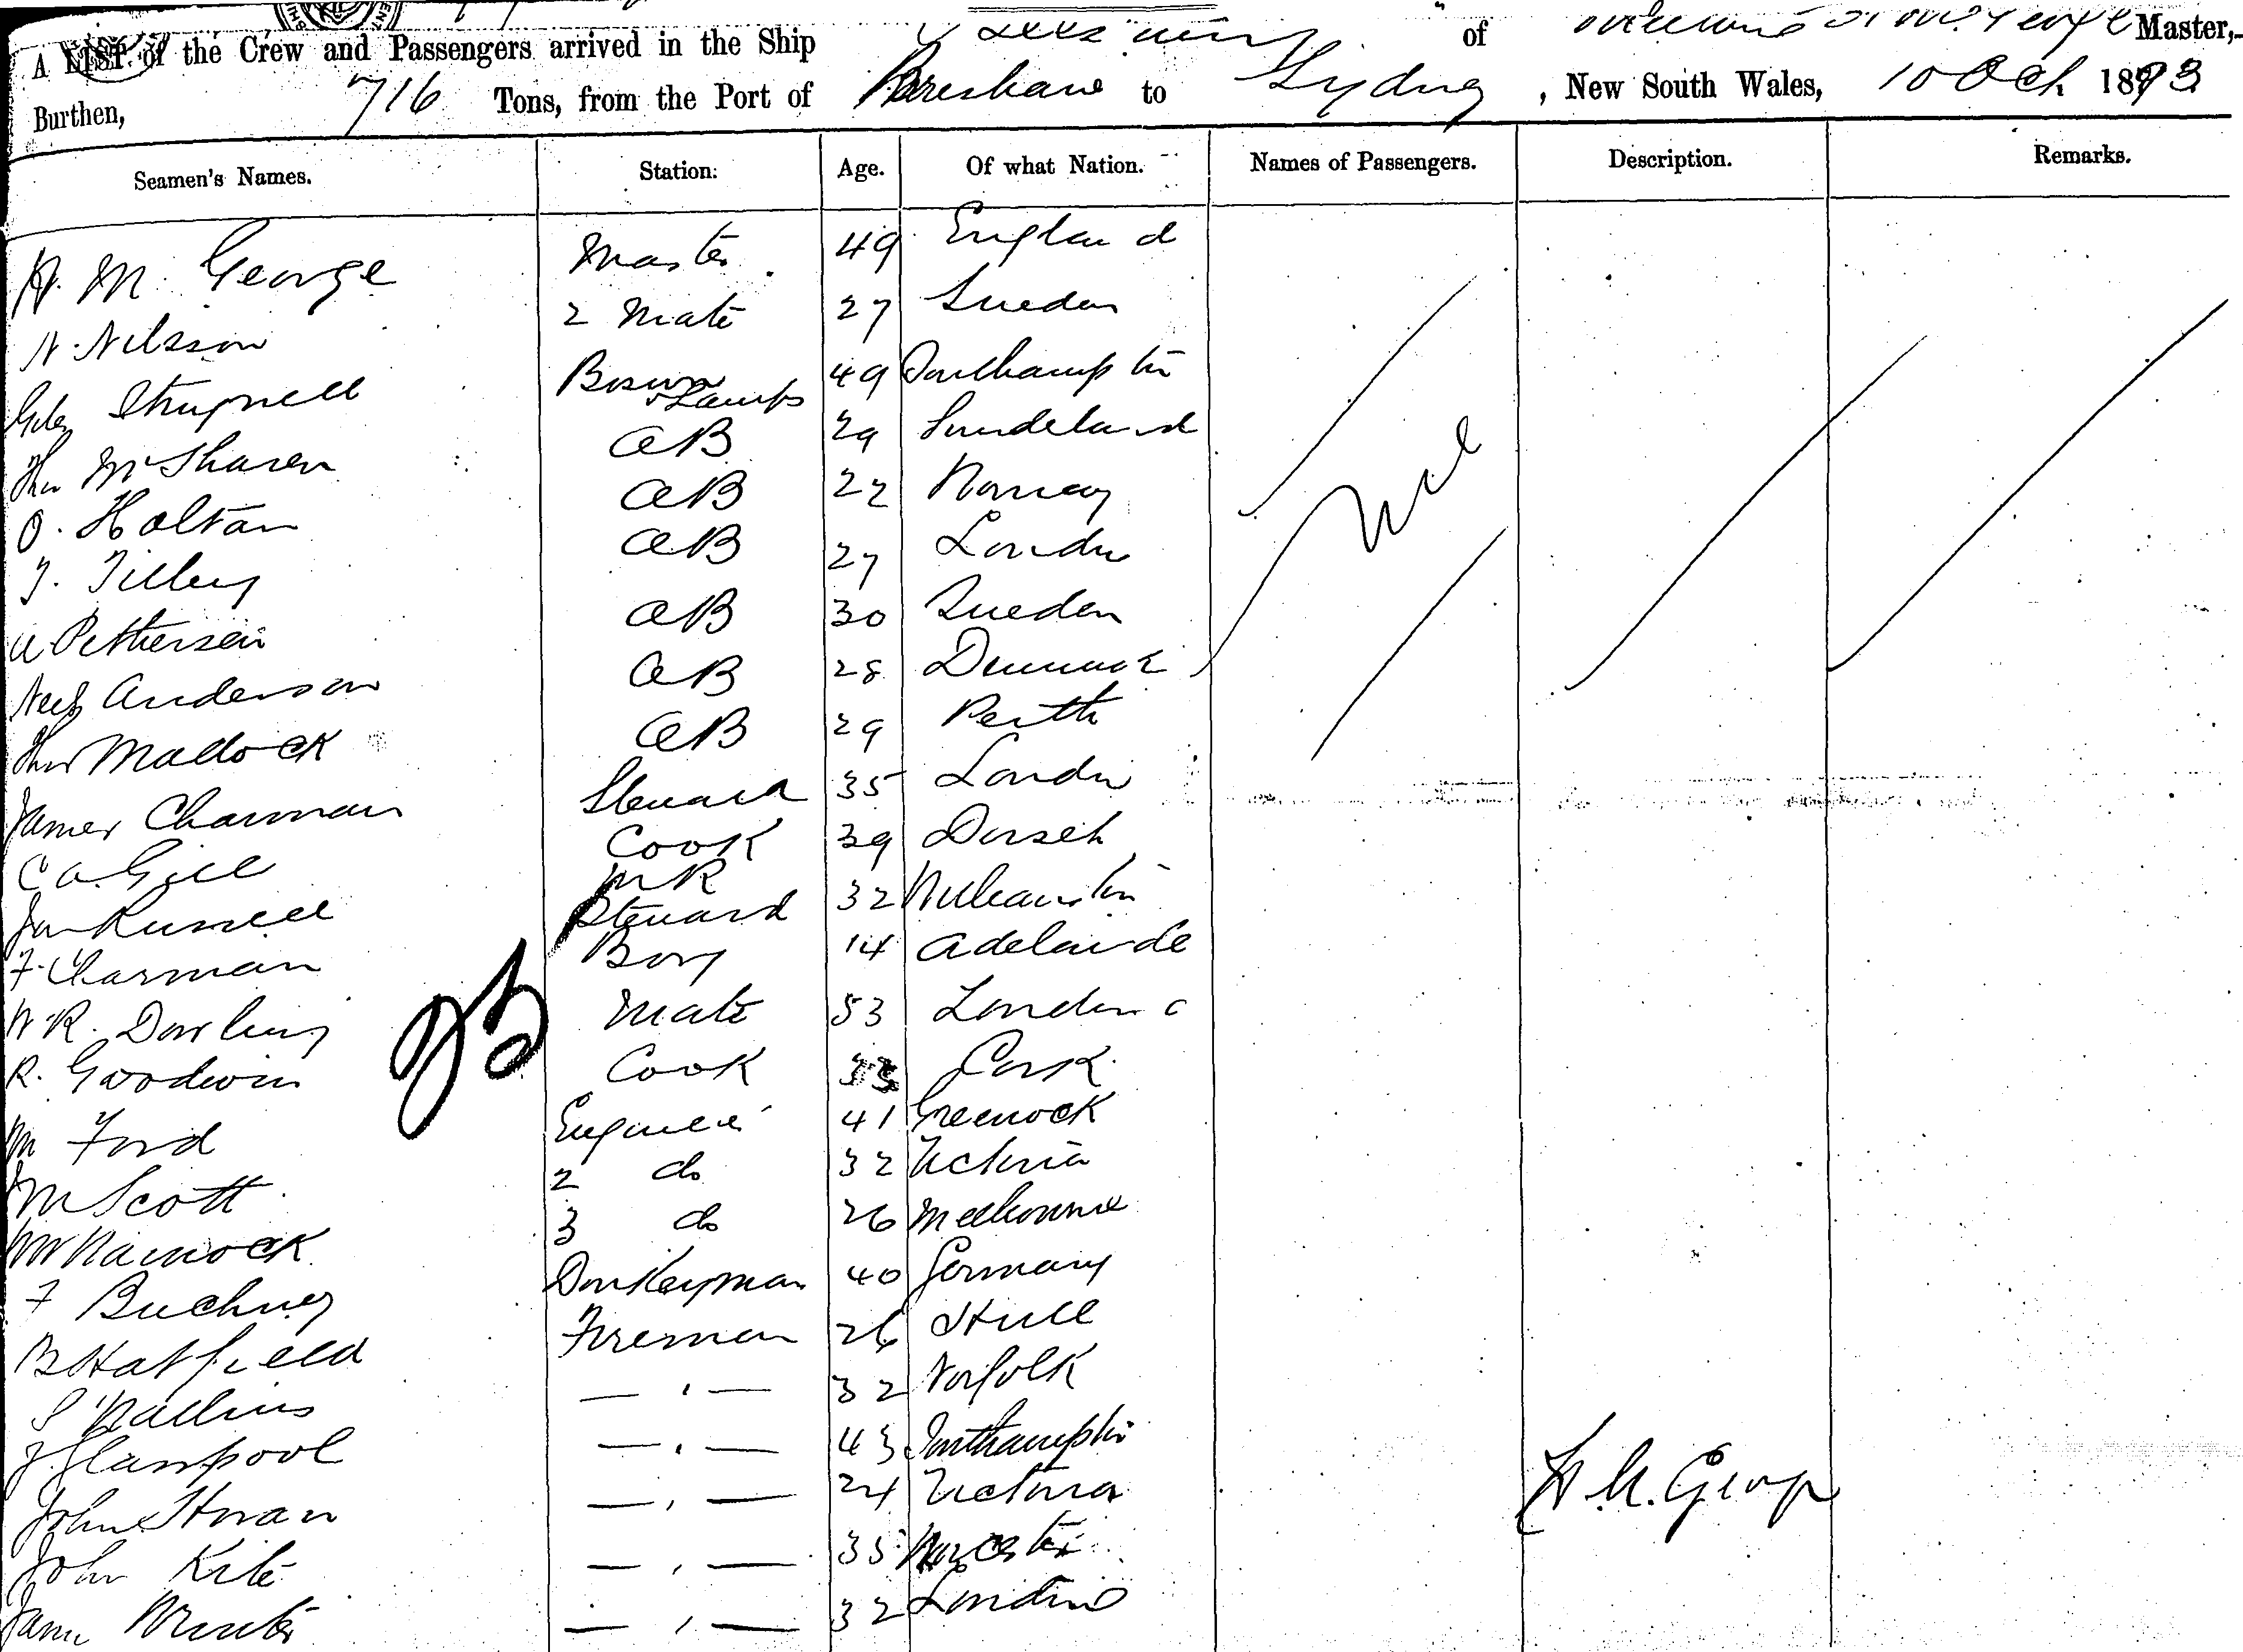 A LIST of the Crew and Passengers arrived in the Ship of Master,
Burthen, 716 Tons, from the Port of Brisbane to Sydney, New South Wales, 10 Oct 1893
Seamen's Names. Station. Age. Of what Nation. Names of Passengers. Description. Remarks.
H. M. George Master 49 England
N. Nilsson 2 Mate 27 Sweden
Giles Strugnell Bosun & Lamps 49 Southampton
Thos McSharen AB 29 Sunderland
O. Holtan AB 22 Norway
J. Tilley AB 27 London
A Pettersen AB 30 Sweden
Neils Anderson AB 28 Denmark
Nil
Thos Maddock AB 29 Perth
James Charman Steward 35 London
C A. Gill Cook 39 Dorset
Jas Russell MR Steward 32 Wolverhampton
F. Charman Boy 14 Adelaide
W. R. Dowling Mate 53 London
R. Goodwin Cook 33 Cork
M Ford Engineer 41 Greenock
M Scott 2 do 32 Victoria
3 do 26 Melbourne
F Buchney Donkeyman 40 Germany
B Hatfield Fireman 26 Hull
S Nallins — " — 32 Norfolk
J. Glanpool — " — 43 Southampton
John Horan — " — 24 Victoria
John Kite — " — 35 Worcester
James Winter — " — 32 London
H. M. George